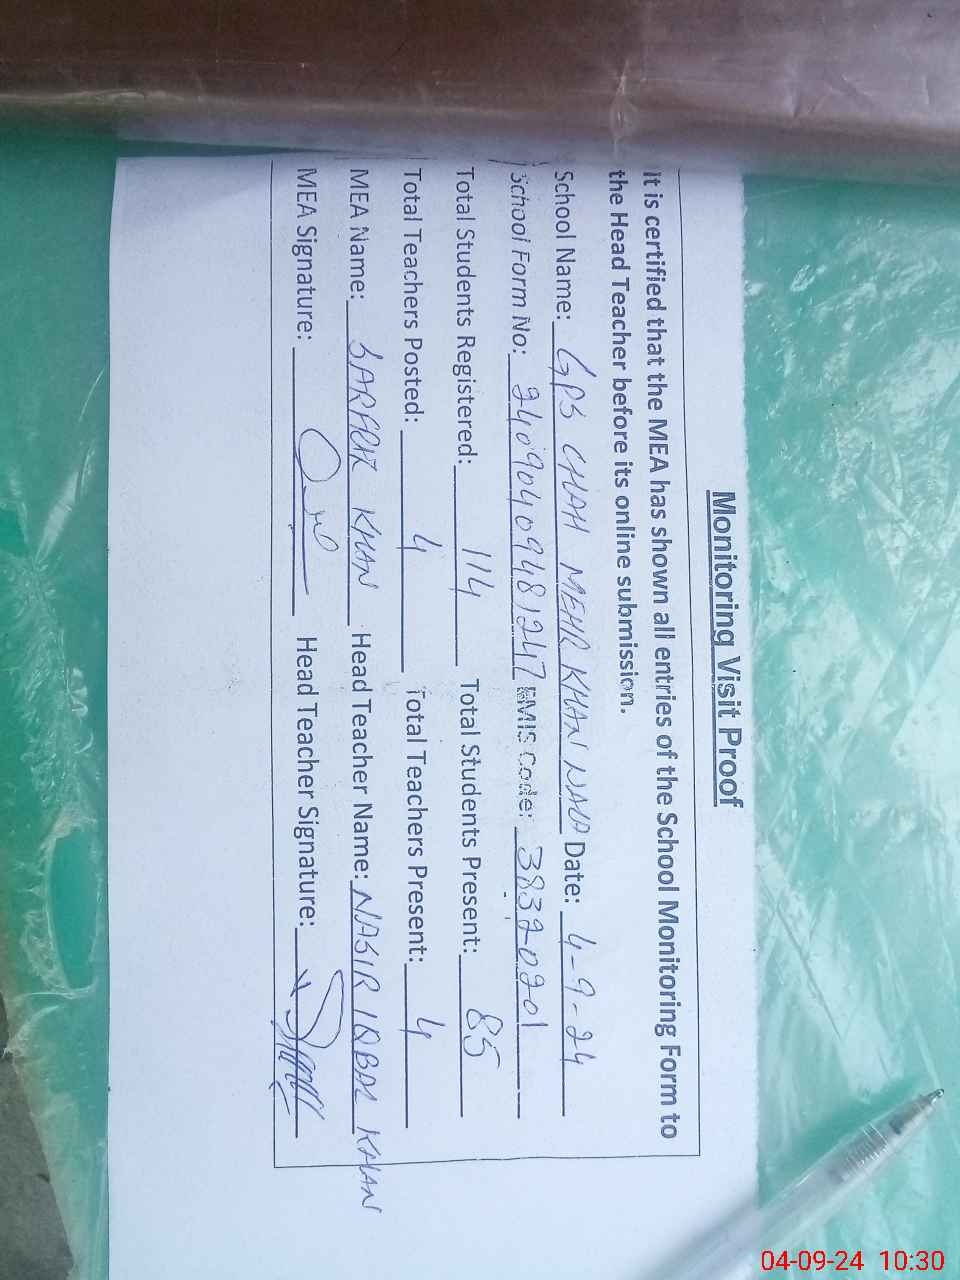 Monitoring Visit Proof
It is certified that the MEA has shown all entries of the School Monitoring Form to
the Head Teacher before its online submission.
School Name: GPS CHAH MEHR KHAN Date: 4-9-24
School Form No: EMIS Code: 38320201
Total Students Registered: 114 Total Students Present: 85
Total Teachers Posted: 4 Total Teachers Present: 4
MEA Name: KHAN Head Teacher Name: NASIR IQBAL KHAN
MEA Signature: Head Teacher Signature:
04-09-24 10:30